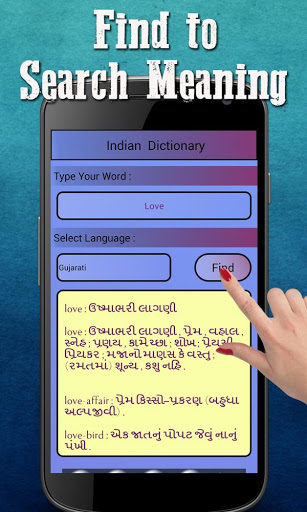 Find to
Search Meaning
Indian Dictionary
Type Your Word :
Love
Select Language :
Gujarati
Find
love : ઉષ્માભરી લાગણી
love : ઉષ્માભરી લાગણી , પ્રેમ , વહાલ ,
સ્નેહ ; પ્રણય , કામેચ્છા ; શોખ ; પ્રેયસી
પ્રિયકર ; મજાનો માણસ કે વસ્તુ ;
(રમતમાં) શૂન્ય , કશુ નહિ .
love-affair : પ્રેમ કિસ્સો-પ્રકરણ (બહુધા
અલ્પજીવી) .
love-bird : એક જાતનું પોપટ જેવું નાનું
પંખી .